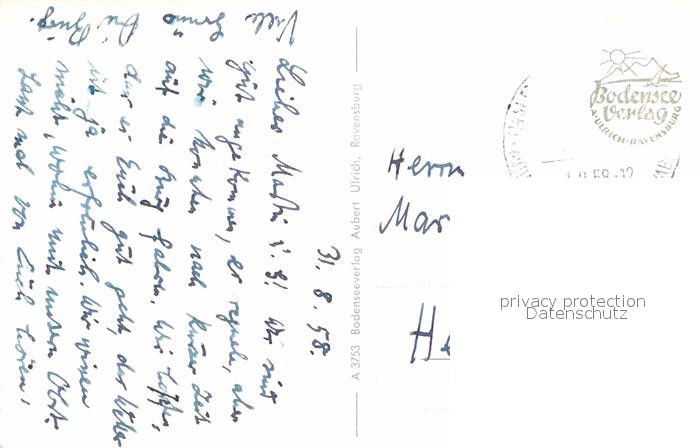 31. 8. 58.
Lieber Martin u. El! Wir sind
gut angekommen, es regnete, aber
wir konnten nach kurzer Zeit
auf die Burg fahren. Wir hoffen,
dass es Euch gut geht, das Wetter
ist ja erfreulich. Wir wissen
nicht, wohin mit unsern Obst.
Lasst mal von Euch hören!
Viele
Grüße
Die
A 3753 Bodenseeverlag Aubert Ulrich, Ravensburg
Bodensee
Verlag
A·ULRICH·RAVENSBURG
Herrn
Mar
He
privacy protection
Datenschutz